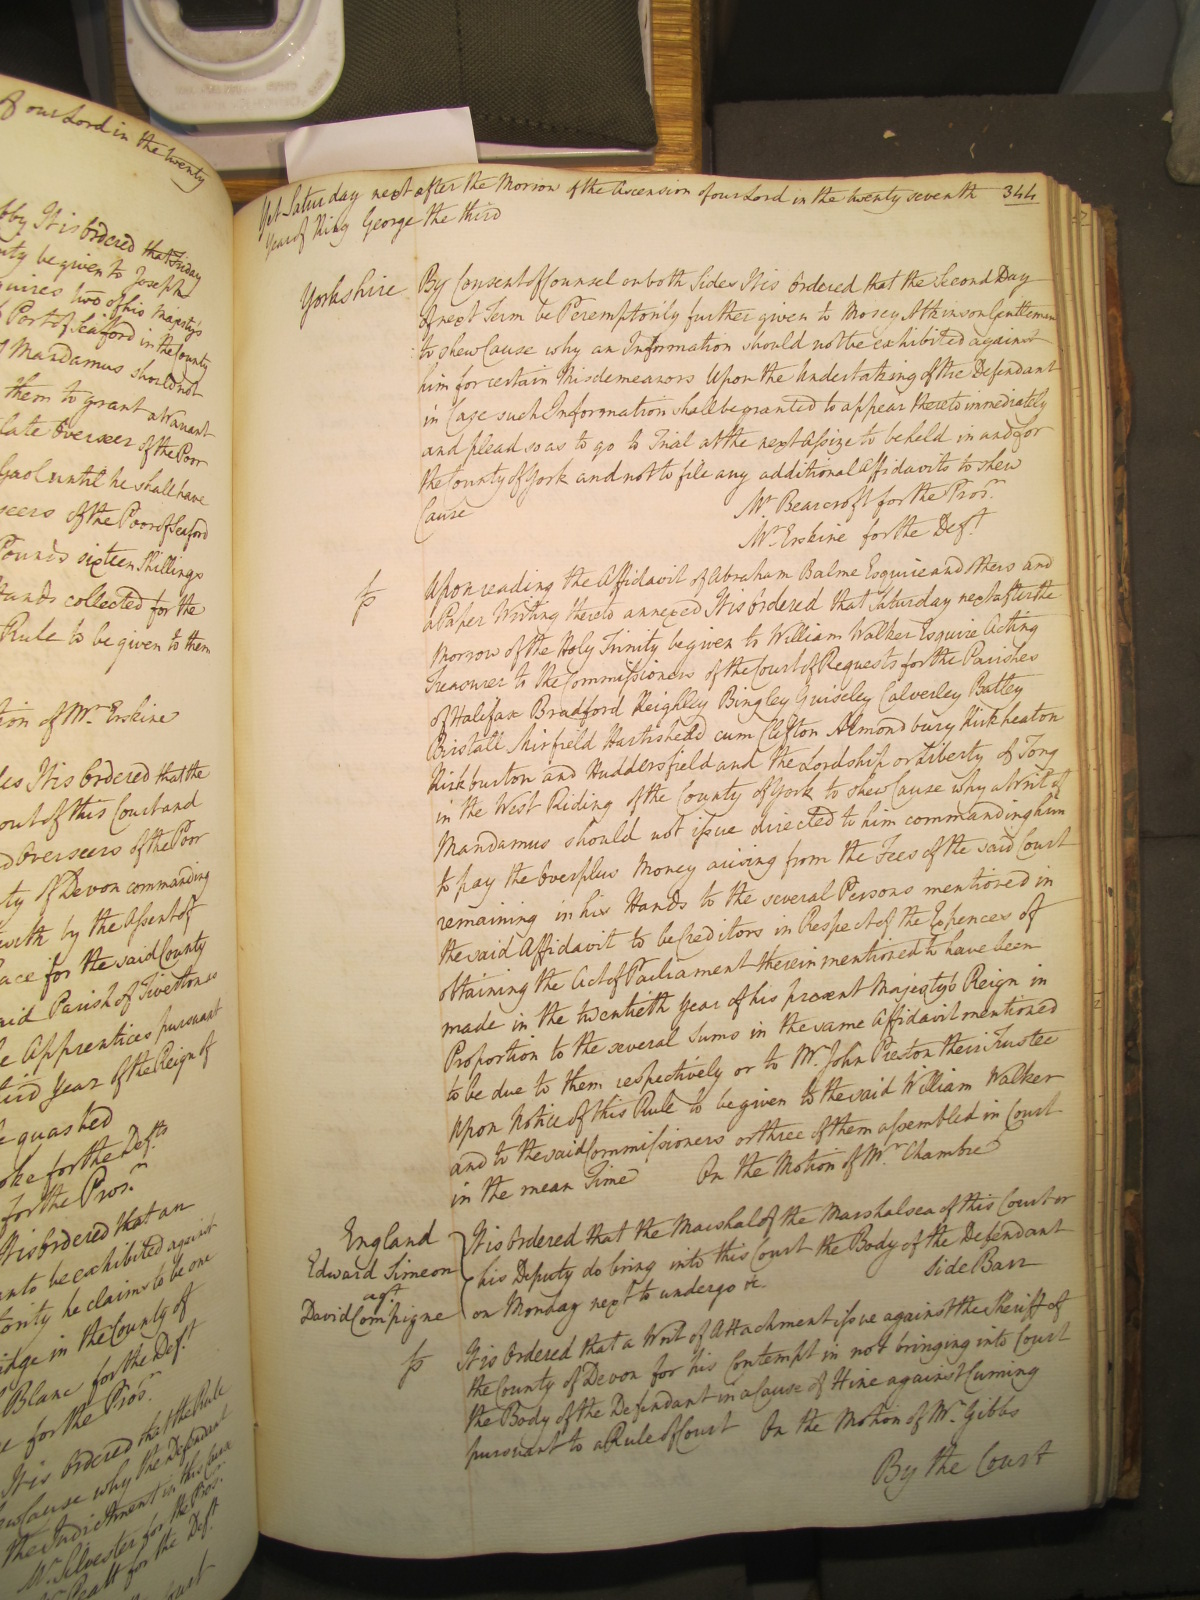 of our Lord in the twenty
bby It is Ordered that Friday
nty be given to Joseph
quires two of his Majestys
Port of Seaford in the County
Mandamus should not
them to grant a Warrant
late Overseer of the Poor
Gaol until he shall have
seers of the Poor of Seaford
Pounds sixteen Shillings
Hands collected for the
Rule to be given to them
tion of Mr. Erskine
les It is Ordered that the
out of this Court and
d Overseers of the Poor
ty of Devon commanding
with by the Assent of
ace for the said County
aid Parish of Tiverton as
e Apprentices pursuant
third Year of the Reign of
e quashed
oke for the Defts
for the Prosr.
It is Ordered that an
anto be exhibited against
hority he claims to be one
idge in the County of
Blanc for the Deft.
e for the Prosr.
It is Ordered that the Rule
ew Cause why the Defendant
the Indictment in this Cause
Mr. Silvester for the Prosr.
for the Deft
Court
Yet Saturday next after the Morrow of the Ascension of our Lord in the twenty seventh 344
Year of King George the third
Yorkshire By Consent of Counsel on both Sides It is Ordered that the Second Day
of next Term be Peremptorily further given to Mosey Atkinson Gentleman
to shew Cause why an Information should not be exhibited against
him for certain Misdemeanors Upon the Undertaking of the Defendant
in Case such Information shall be granted to appear thereto immediately
and plead so as to go to Trial at the next Assize to be held in and for
the County of York and not to file any additional Affidavits to shew
Cause Mr. Bearcroft for the Prosr.
Mr. Erskine for the Deft
Upon reading the Affidavit of Abraham Balme Esquire and Others and
a Paper Writing thereto annexed It is Ordered that Saturday next after the
Morrow of the Holy Trinity be given to William Walker Esquire Acting
Treasurer to the Commissioners of the Court of Requests for the Parishes
of Halifax Bradford Keighley Bingley Guiseley Calverley Batley
Birstall Mirfield Hartishead cum Clifton Almondbury Kirkheaton
Kirkburton and Huddersfield and the Lordship or Liberty of Tong
in the West Riding of the County of York to shew Cause why a Writ of
Mandamus should not issue directed to him commanding him
to pay the Overplus Money arising from the Fees of the said Court
remaining in his Hands to the several Persons mentioned in
the said Affidavit to be Creditors in Respect of the Expences of
obtaining the Act of Parliament therein mentioned to have been
made in the twentieth Year of his present Majesty's Reign in
Proportion to the several Sums in the same Affidavit mentioned
to be due to them respectively or to Mr. John Preston their Trustee
Upon Notice of this Rule to be given to the said William Walker
and to the said Commissioners or three of them assembled in Court
in the mean Time On the Motion of Mr. Chambre
England
Edward Simeon
agt.
David Compigne
It is Ordered that the Marshal of the Marshalsea of this Court or
his Deputy do bring into this Court the Body of the Defendant
on Monday next to undergo &c. Side Barr
It is Ordered that a Writ of Attachment issue against the Sheriff of
the County of Devon for his Contempt in not bringing into Court
the Body of the Defendant in a Cause of Hine against Cuming
pursuant to a Rule of Court On the Motion of Mr. Gibbs
By the Court